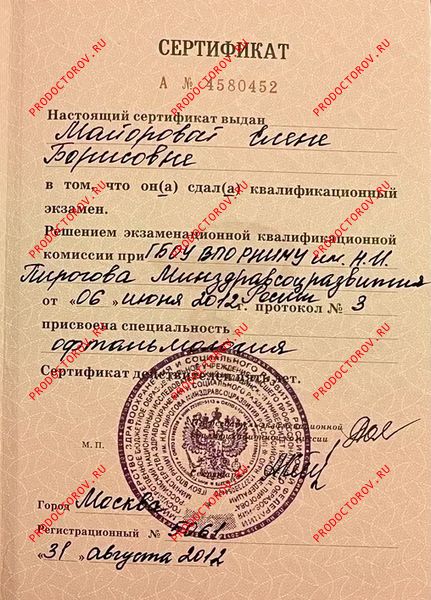 СЕРТИФИКАТ
А № 4580452
Настоящий сертификат выдан
Майоровой Елене
Борисовне
в том, что он(а) сдал(а) квалификационный
экзамен.
Решением экзаменационной квалификационной
комиссии при ГБОУ ВПО РНИМУ им. Н.И.
Пирогова Минздравсоцразвития
России
от «06» июня 2012 г. протокол № 3
присвоена специальность
офтальмология
Сертификат действителен лет.
М. П.
Город Москва
Регистрационный № 5661
«31» августа 2012
PRODOCTOROV.RU